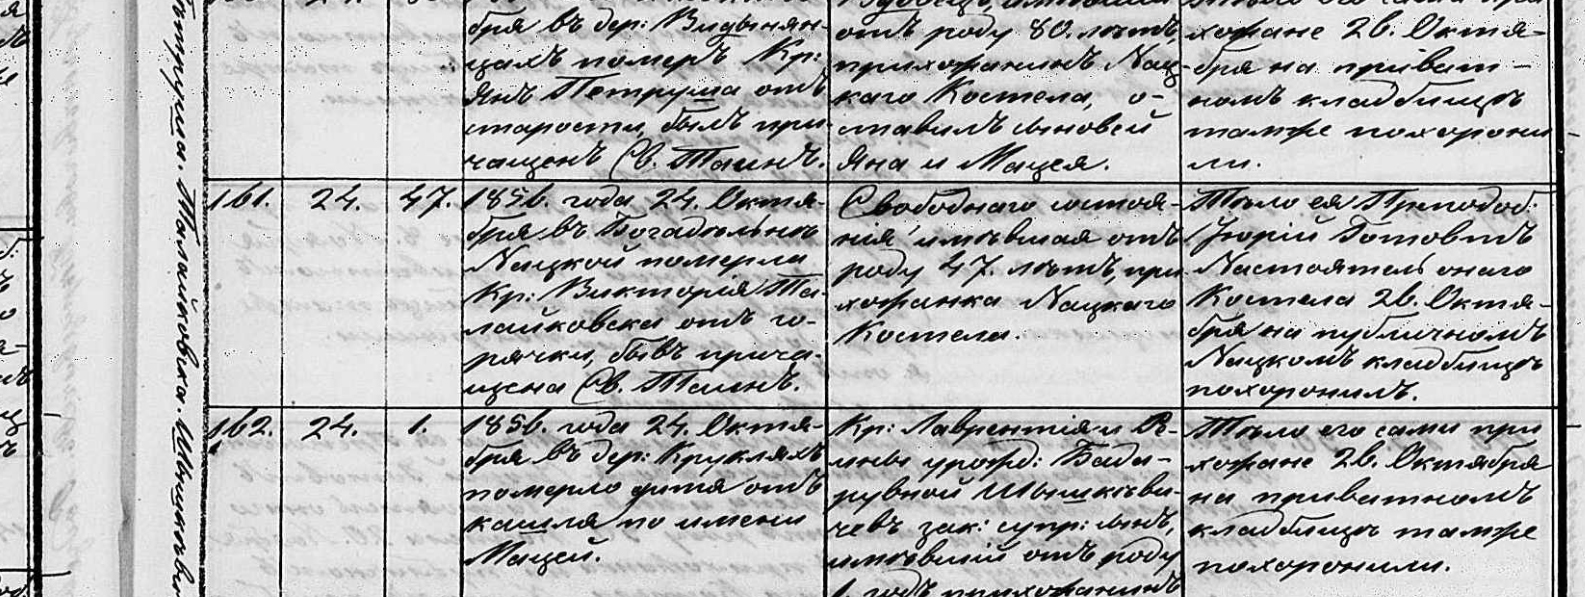 бря въ дер: Видыня-
цахъ померъ Кр:
Янъ Петруша отъ
старости, былъ при-
чащенъ Св. Таинъ.
отъ роду 80. лѣтъ,
прихожанинъ Нац-
каго Костела, о-
ставилъ сыновей
Яна и Мацея.
хожане 26. Октя-
бря на приват-
номъ кладбищѣ
тамже похорони
ли.
161.
24.
47.
1856. года 24. Октя-
бря въ Богадѣльнѣ
Нацкой померла
Кр: Викторія Та-
лайковска отъ го-
рячки, бывъ прича-
щена Св. Таинъ.
Свободнаго состоя-
нія имѣвшая отъ
роду 47. лѣтъ, при
хожанка Нацкаго
Костела.
Тѣло ея Преподоб:
Юрій Готовтъ
Настоятель онаго
Костела 26. Октя-
бря на публичномъ
Нацкомъ кладбищѣ
похоронилъ.
162.
24.
1.
1856. года 24. Октя-
бря въ дер: Крукляхъ
померло дитя отъ
кашля по имени
Мацей.
Кр: Лаврентія и
урожд:
Шышкеви-
чевъ зак: супр: сынъ,
имѣвшій отъ роду
1. годъ прихожанинъ
Тѣло его сами при
хожане 26. Октября
на приватномъ
кладбищѣ тамже
похоронили.
Петруша. Талайковска.